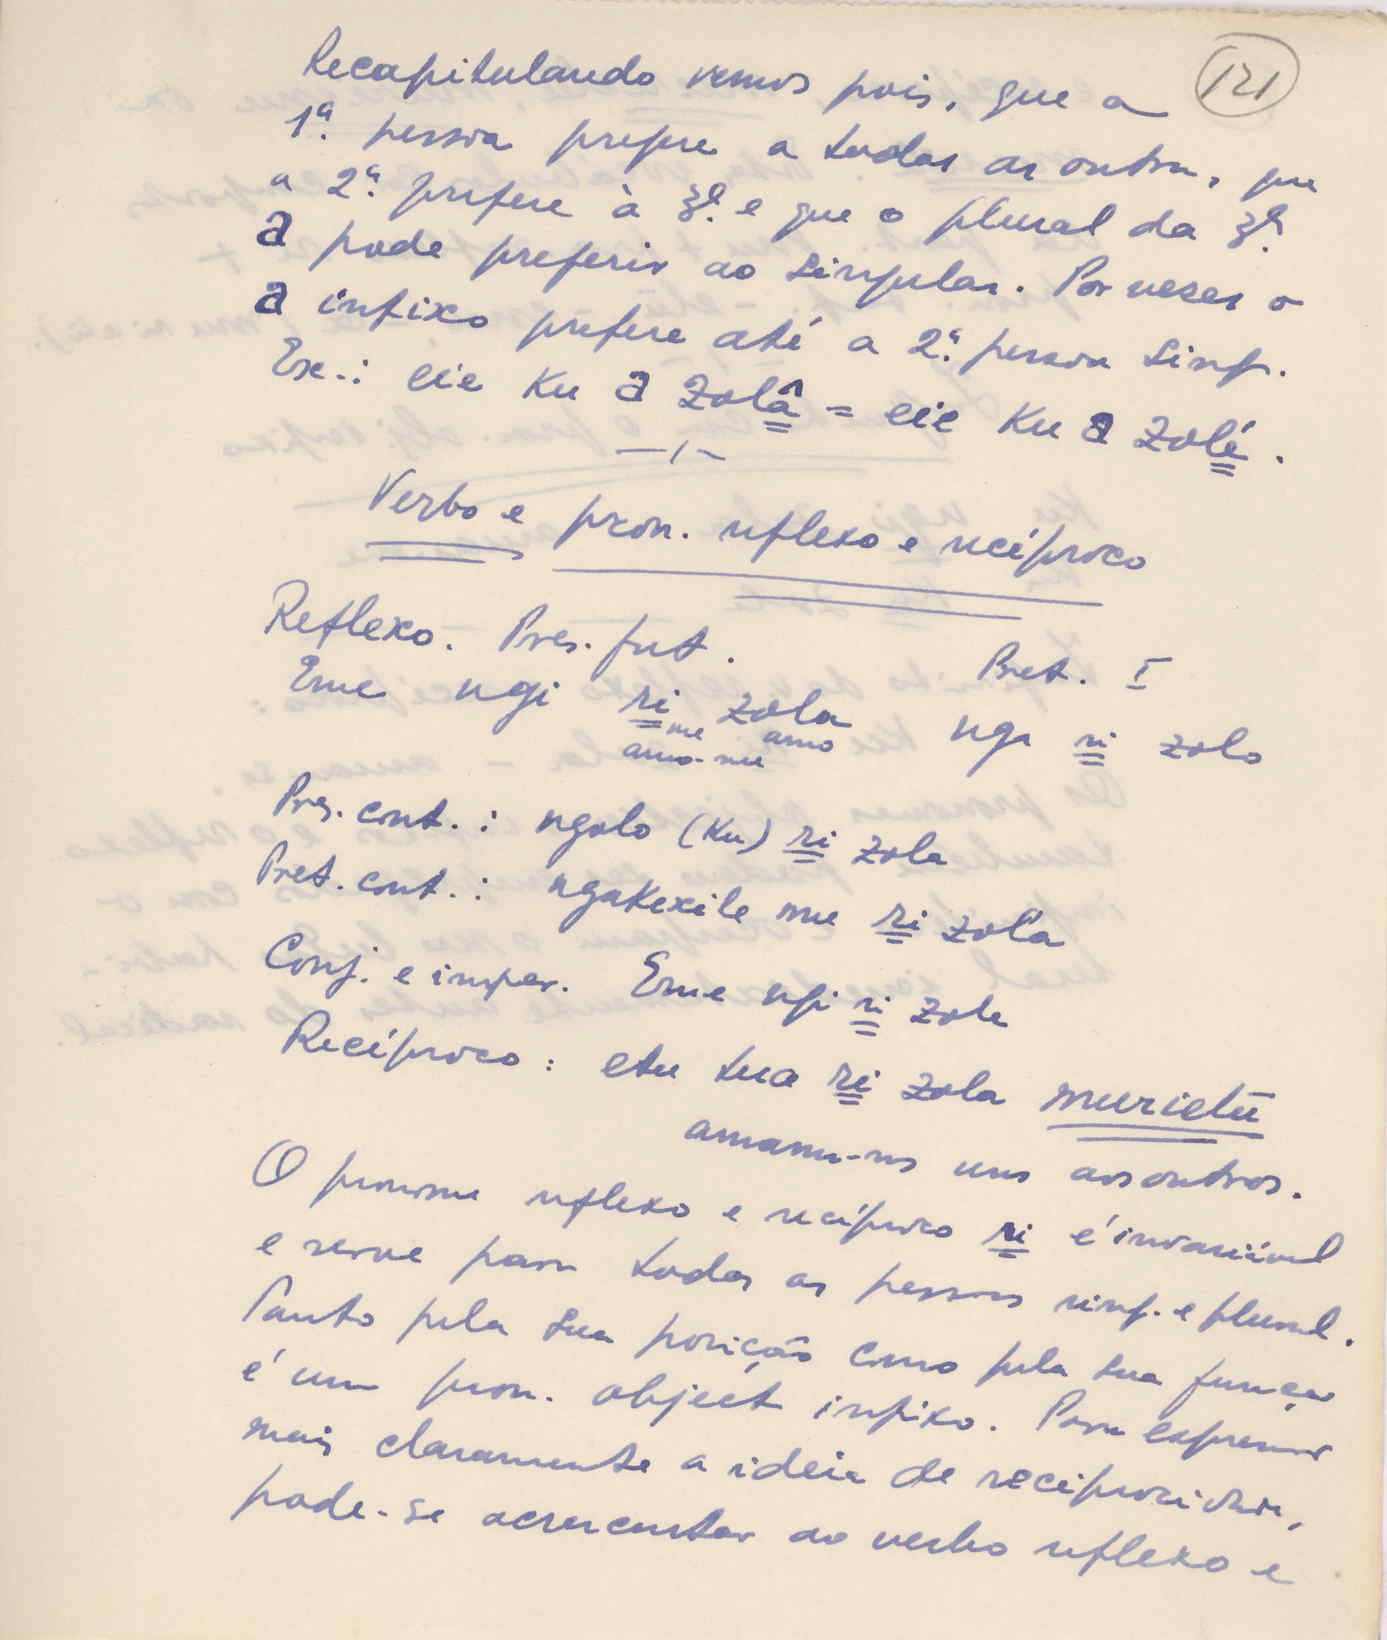 121
Recapitulando vemos pois, que a
1ª. pessoa prefere a todas as outras, que
a 2ª. prefere à 3ª. e que o plural da 3ª.
a pode preferir ao singular. Por vezes o
a infixo prefere até a 2ª. pessoa sing.
Ex.: eie Ku a zolâ = eie Ku a zolé.
Verbo e pron. reflexo e recíproco
Reflexo. Pres. fut. Pret. I
Eme ngi ri zola nga ri zolo
me amo
amo-me
Pres. cont.: ngolo (Ku) ri zola
Pret. cont.: ngakexile mu ri zola
Conj. e imper. Eme ngi ri zole
Recíproco: etu tua ri zola murietū
amamo-nos uns aos outros.
O pronome reflexo e recíproco ri é invariável
e serve para todas as pessoas sing. e plural.
Tanto pela sua posição como pela sua função
é um pron. object infixo. Para expremir
mais claramente a ideia de reciprocidade,
pode-se acrescentar ao verbo reflexo e